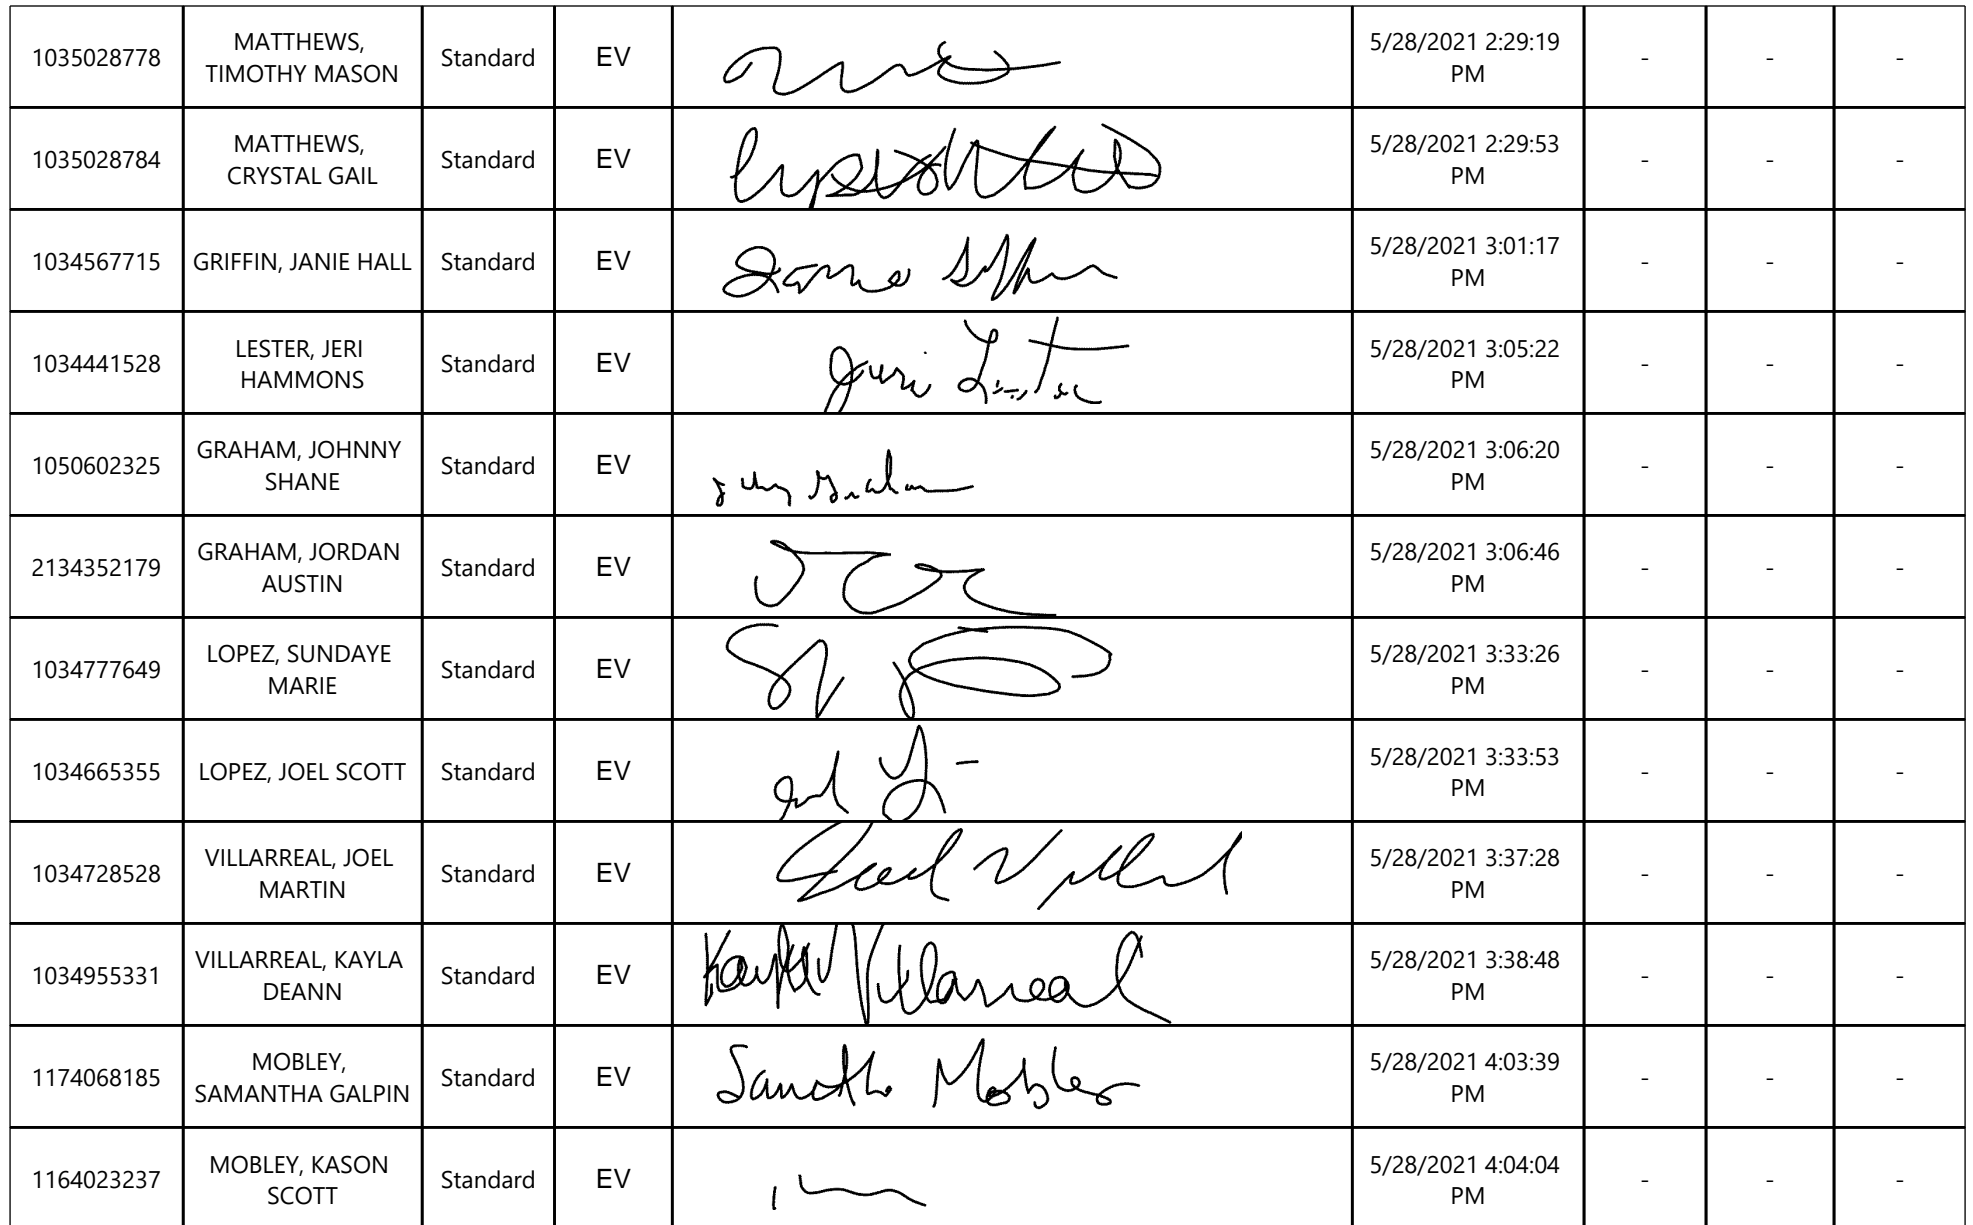 1035028778 MATTHEWS, TIMOTHY MASON Standard EV 5/28/2021 2:29:19 PM - - -
1035028784 MATTHEWS, CRYSTAL GAIL Standard EV 5/28/2021 2:29:53 PM - - -
1034567715 GRIFFIN, JANIE HALL Standard EV 5/28/2021 3:01:17 PM - - -
1034441528 LESTER, JERI HAMMONS Standard EV 5/28/2021 3:05:22 PM - - -
1050602325 GRAHAM, JOHNNY SHANE Standard EV 5/28/2021 3:06:20 PM - - -
2134352179 GRAHAM, JORDAN AUSTIN Standard EV 5/28/2021 3:06:46 PM - - -
1034777649 LOPEZ, SUNDAYE MARIE Standard EV 5/28/2021 3:33:26 PM - - -
1034665355 LOPEZ, JOEL SCOTT Standard EV 5/28/2021 3:33:53 PM - - -
1034728528 VILLARREAL, JOEL MARTIN Standard EV 5/28/2021 3:37:28 PM - - -
1034955331 VILLARREAL, KAYLA DEANN Standard EV Kayla Villarreal 5/28/2021 3:38:48 PM - - -
1174068185 MOBLEY, SAMANTHA GALPIN Standard EV Mobley 5/28/2021 4:03:39 PM - - -
1164023237 MOBLEY, KASON SCOTT Standard EV 5/28/2021 4:04:04 PM - - -